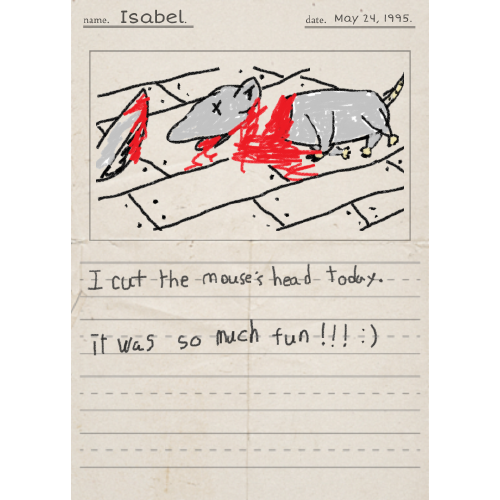 name. Isabel.
date. May 24, 1995.
I cut the mouse's head today.
it was so much fun !!! :)